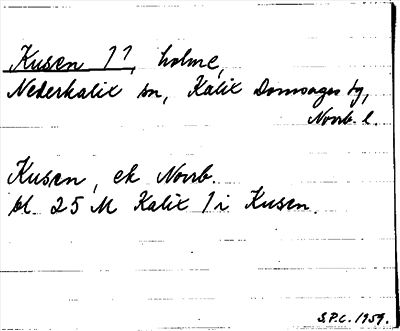 Kusen 11, holme,
Nederkalix sn, Kalix Domsagas tg,
Norrb. l.
Kusen, ek Norrb.
bl. 25 M Kalix 1 i Kusen.
S.P.C. 1959.